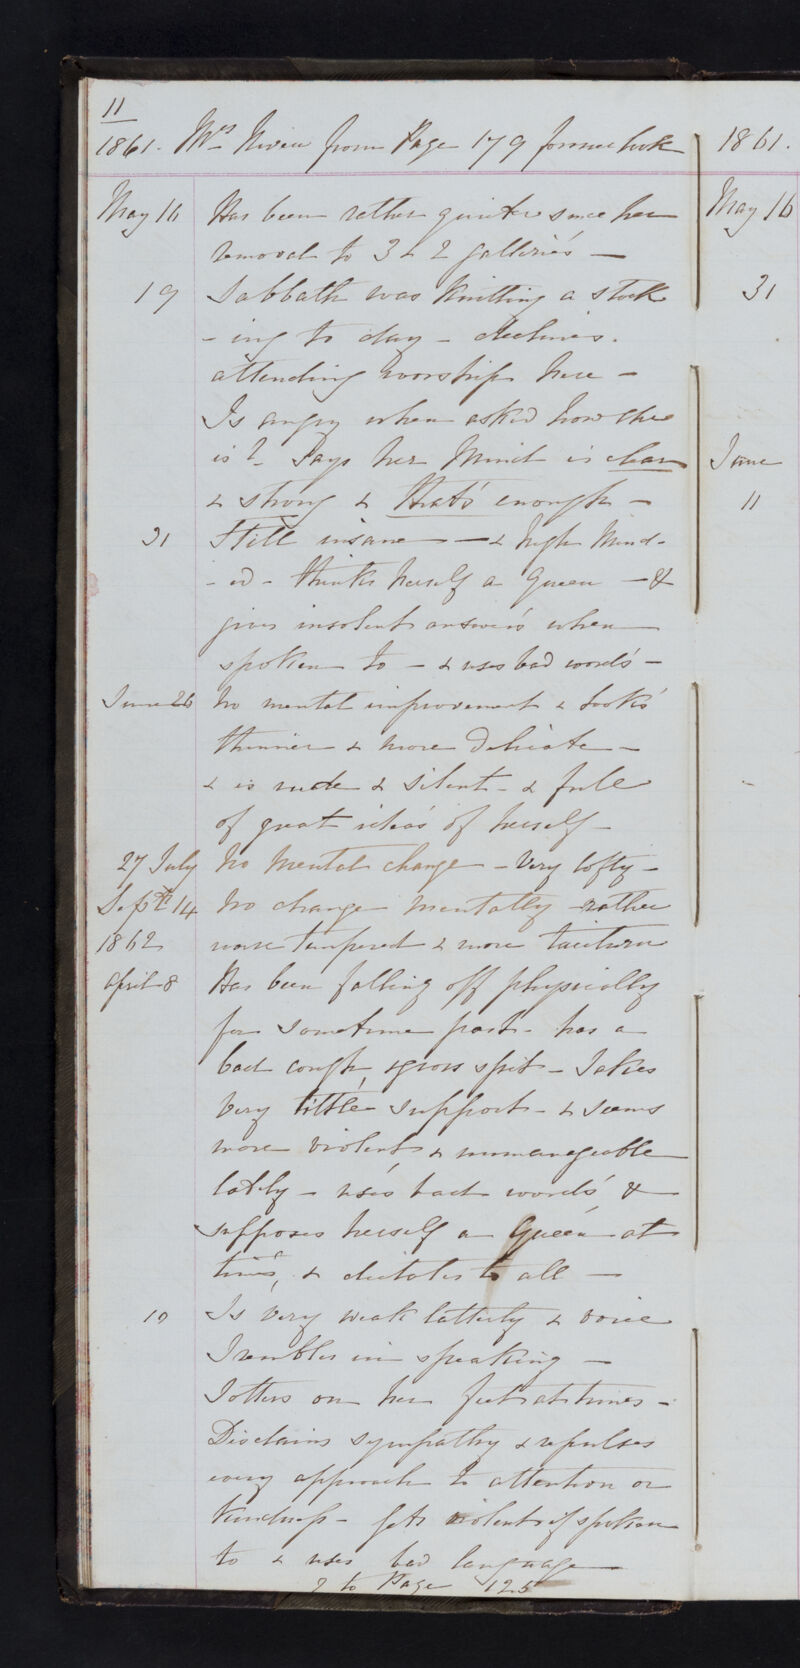 11
1861. Mrs Niven from Page 179 former book
May 16 Has been rather quieter since her
removal to 3 & 2 galleries —
19 Sabbath was Knitting a stock
- ing to day - declines.
attending worship here -
Is angry when asked how she
is? - Says her Mind is clear
& strong & that's enough -
31 Still insane — & high Mind-
- ed - thinks herself a Queen - &
gives insolent answers when
spoken to - & uses bad words -
June 26 No mental improvement & looks
thinner & more delicate -
& is rude & silent - & full
of great ideas of herself -
27 July No Mental change - Very lofty -
Sept 14 No change mentally - rather
1862 worse tempered & more taciturn
April 8 Has been falling off physically
for sometime past - has a
bad cough, & gross spit - Takes
Very little support - & seems
more violent & unmanageable
lately - uses bad words &
supposes herself a Queen at
times, & dictates to all —
10 Is very weak latterly & voice
Trembles in speaking —
Totters on her feet at times -
Disclaims sympathy & repulses
every approach to attention or
Kindness - Gets violent if spoken
to & uses bad language
to Page 125
1861.
May 16
31
June
11